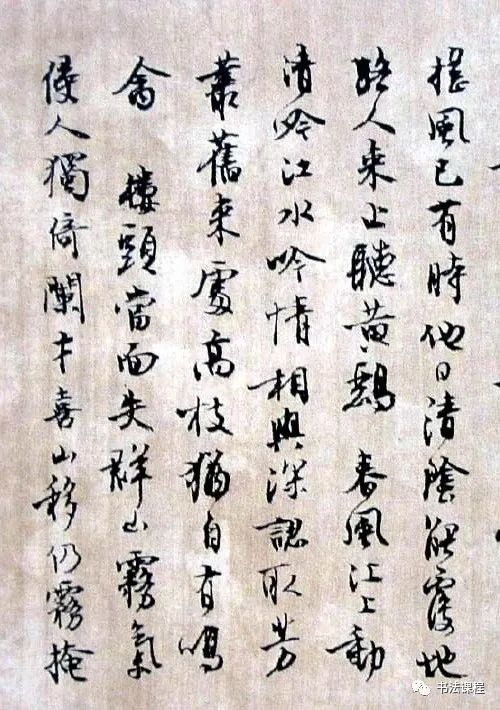 搖風已有時他日清陰能覆地
路人来止聽黄鸝 春風江上動
清吟江水吟情相與深認取芳
叢舊来處高枝猶自有鳴
禽 樓頭當面失群山霧氣
侵人獨倚闌才喜山移仍霧掩
书法课程